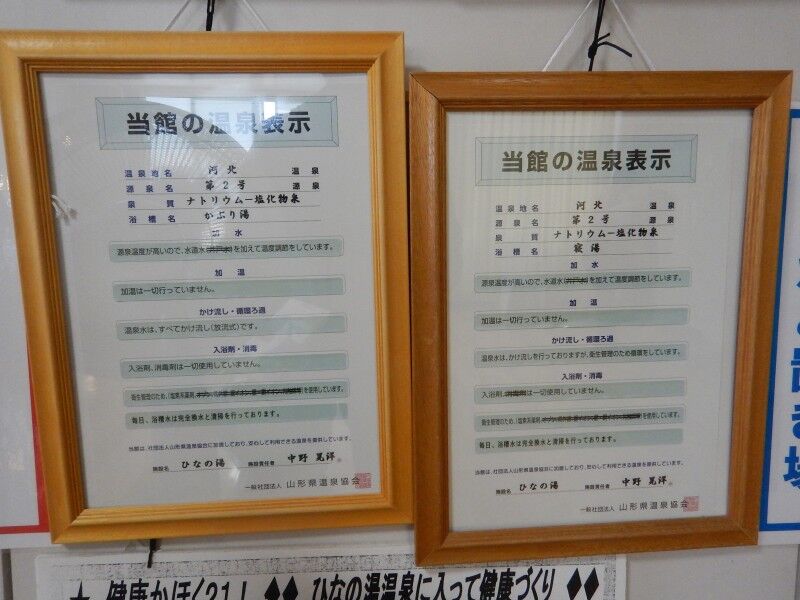 当館の温泉表示
温泉地名 河北 温泉
源泉名 第2号 源泉
泉質 ナトリウム−塩化物泉
浴槽名 かぶり湯
加水
源泉温度が高いので、水道水(井戸水)を加えて温度調節をしています。
加温
加温は一切行っていません。
かけ流し・循環ろ過
温泉水は、すべてかけ流し(放流式)です。
入浴剤・消毒
入浴剤、消毒剤は一切使用していません。
衛生管理のため、(塩素系薬剤、
を使用しています。
毎日、浴槽水は完全換水と清掃を行っております。
当館は、社団法人山形県温泉協会に加盟しており、安心して利用できる温泉を提供しています。
施設名 ひなの湯 施設責任者 中野 晃洋
一般社団法人 山形県温泉協会
当館の温泉表示
温泉地名 河北 温泉
源泉名 第2号 源泉
泉質 ナトリウム−塩化物泉
浴槽名 寝湯
加水
源泉温度が高いので、水道水(井戸水)を加えて温度調節をしています。
加温
加温は一切行っていません。
かけ流し・循環ろ過
温泉水は、かけ流しを行っておりますが、衛生管理のため循環をしています。
入浴剤・消毒
入浴剤、消毒剤は一切使用していません。
衛生管理のため、(塩素系薬剤、
を使用しています。
毎日、浴槽水は完全換水と清掃を行っております。
当館は、社団法人山形県温泉協会に加盟しており、安心して利用できる温泉を提供しています。
施設名 ひなの湯 施設責任者 中野 晃洋
一般社団法人 山形県温泉協会
★ 健康かほく21! ◆◆ ひなの湯温泉に入って健康づくり ◆◆